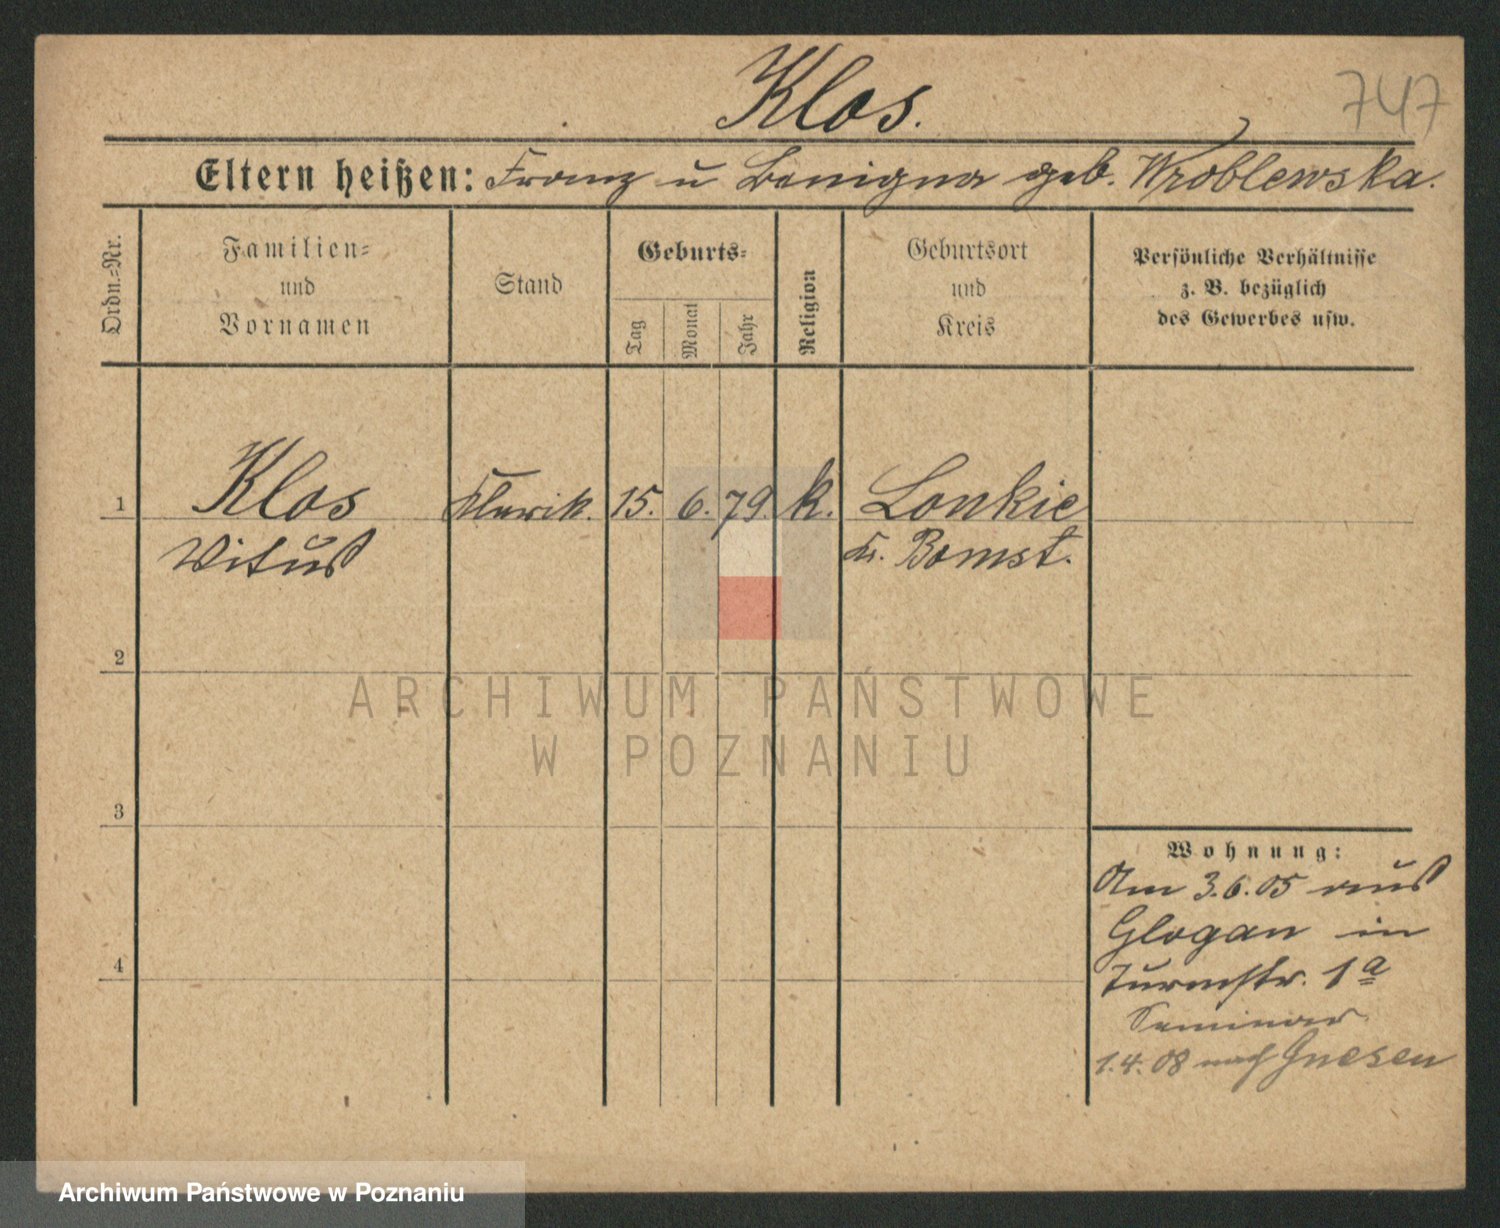 Klos.
747
Eltern heißen: Franz u Benigna geb. Wroblewska.
Ordn.=Nr.
Familien=
und
Vornamen
Stand
Geburts=
Tag
Monat
Jahr
Religion
Geburtsort
und
Kreis
Persönliche Verhältnisse
z. B. bezüglich
des Gewerbes usw.
1 Klos Klerik. 15. 6. 79. k. Lonkie
Vitus Kr. Bomst.
2
ARCHIWUM PAŃSTWOWE
W POZNANIU
3
Wohnung:
Am 3.6.05 aus
Glogau in
4
Turmstr. 1a
Seminar
1.4.08 nach Gnesen
Archiwum Państwowe w Poznaniu